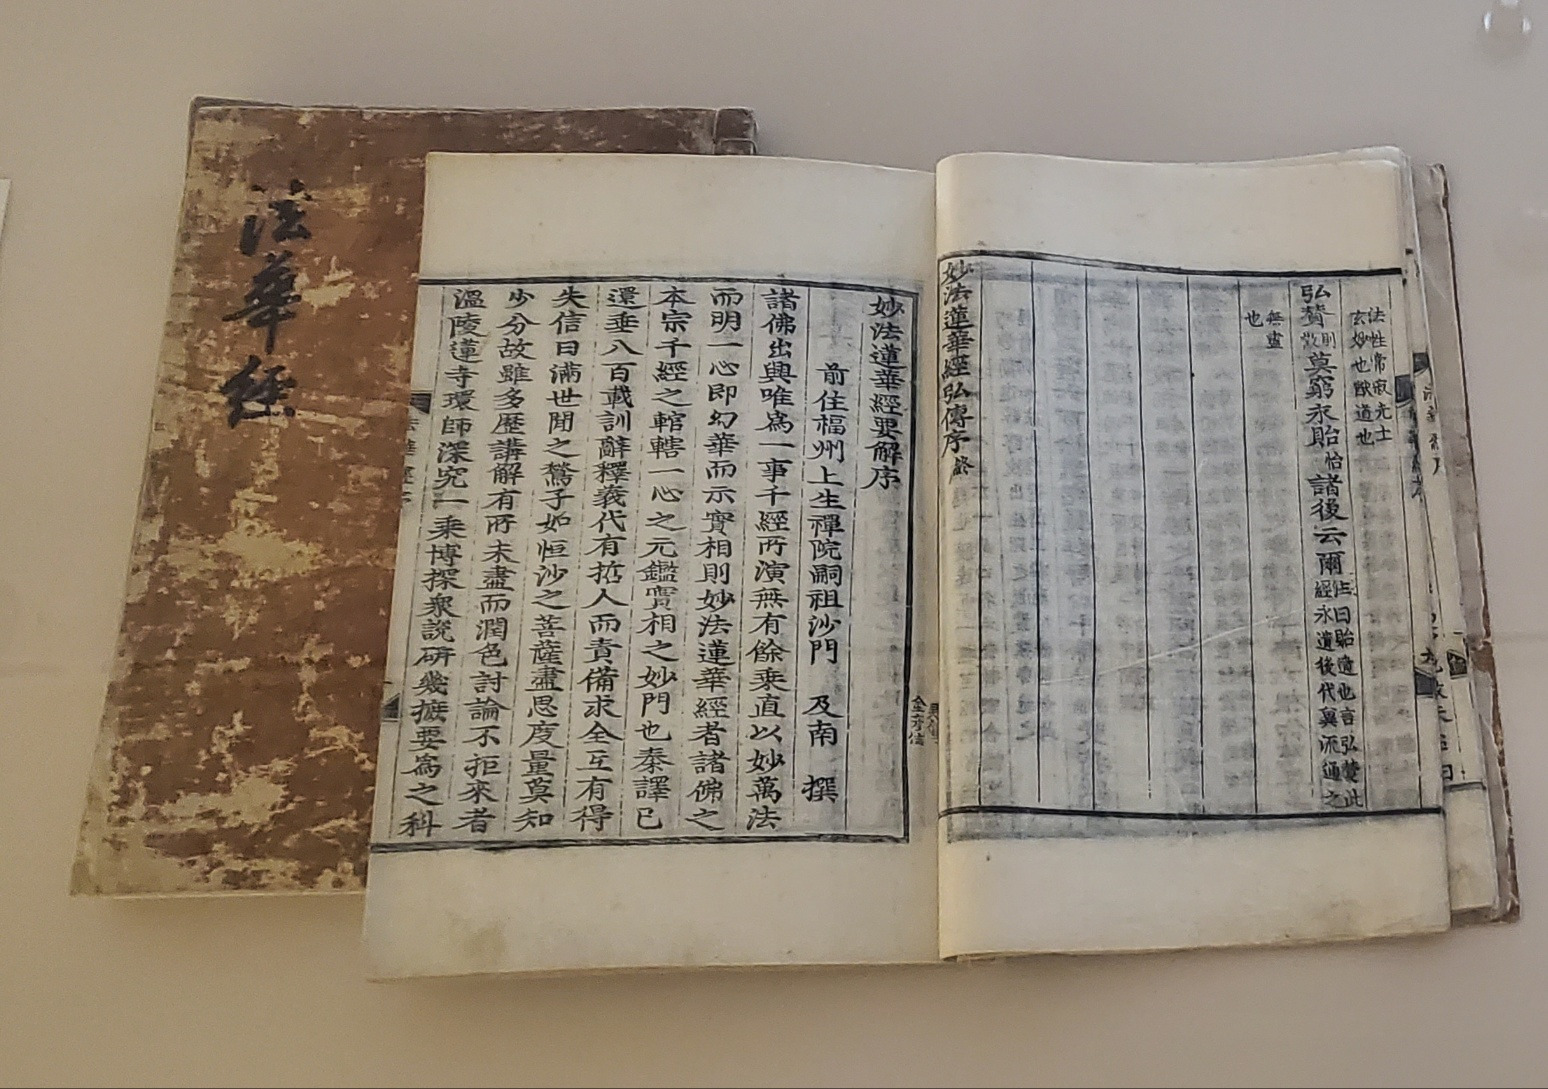 法華經
法性常寂先士
玄妙也猷道也
弘賛則散莫窮永貽怡諸後云爾注曰貽遺也言弘賛此
經永遺後代冀流通之
無盡
也
妙法蓮華經弘傳序終
妙法蓮華經要解序
前住福州上生禪院嗣祖沙門 及南 撰
諸佛出興唯爲一事千經所演無有餘乘直以妙萬法
而明一心即幻華而示實相則妙法蓮華經者諸佛之
本宗千經之輨轄一心之元鑑實相之妙門也秦譯已
還垂八百載訓辭釋義代有哲人而責備求全互有得
失信曰滿世間之鶖子如恒沙之菩薩盡思度量莫知
少分故雖多歷講解有所未盡而潤色討論不拒來者
溫陵蓮寺環師深究一乘博探衆說研幾摭要爲之科